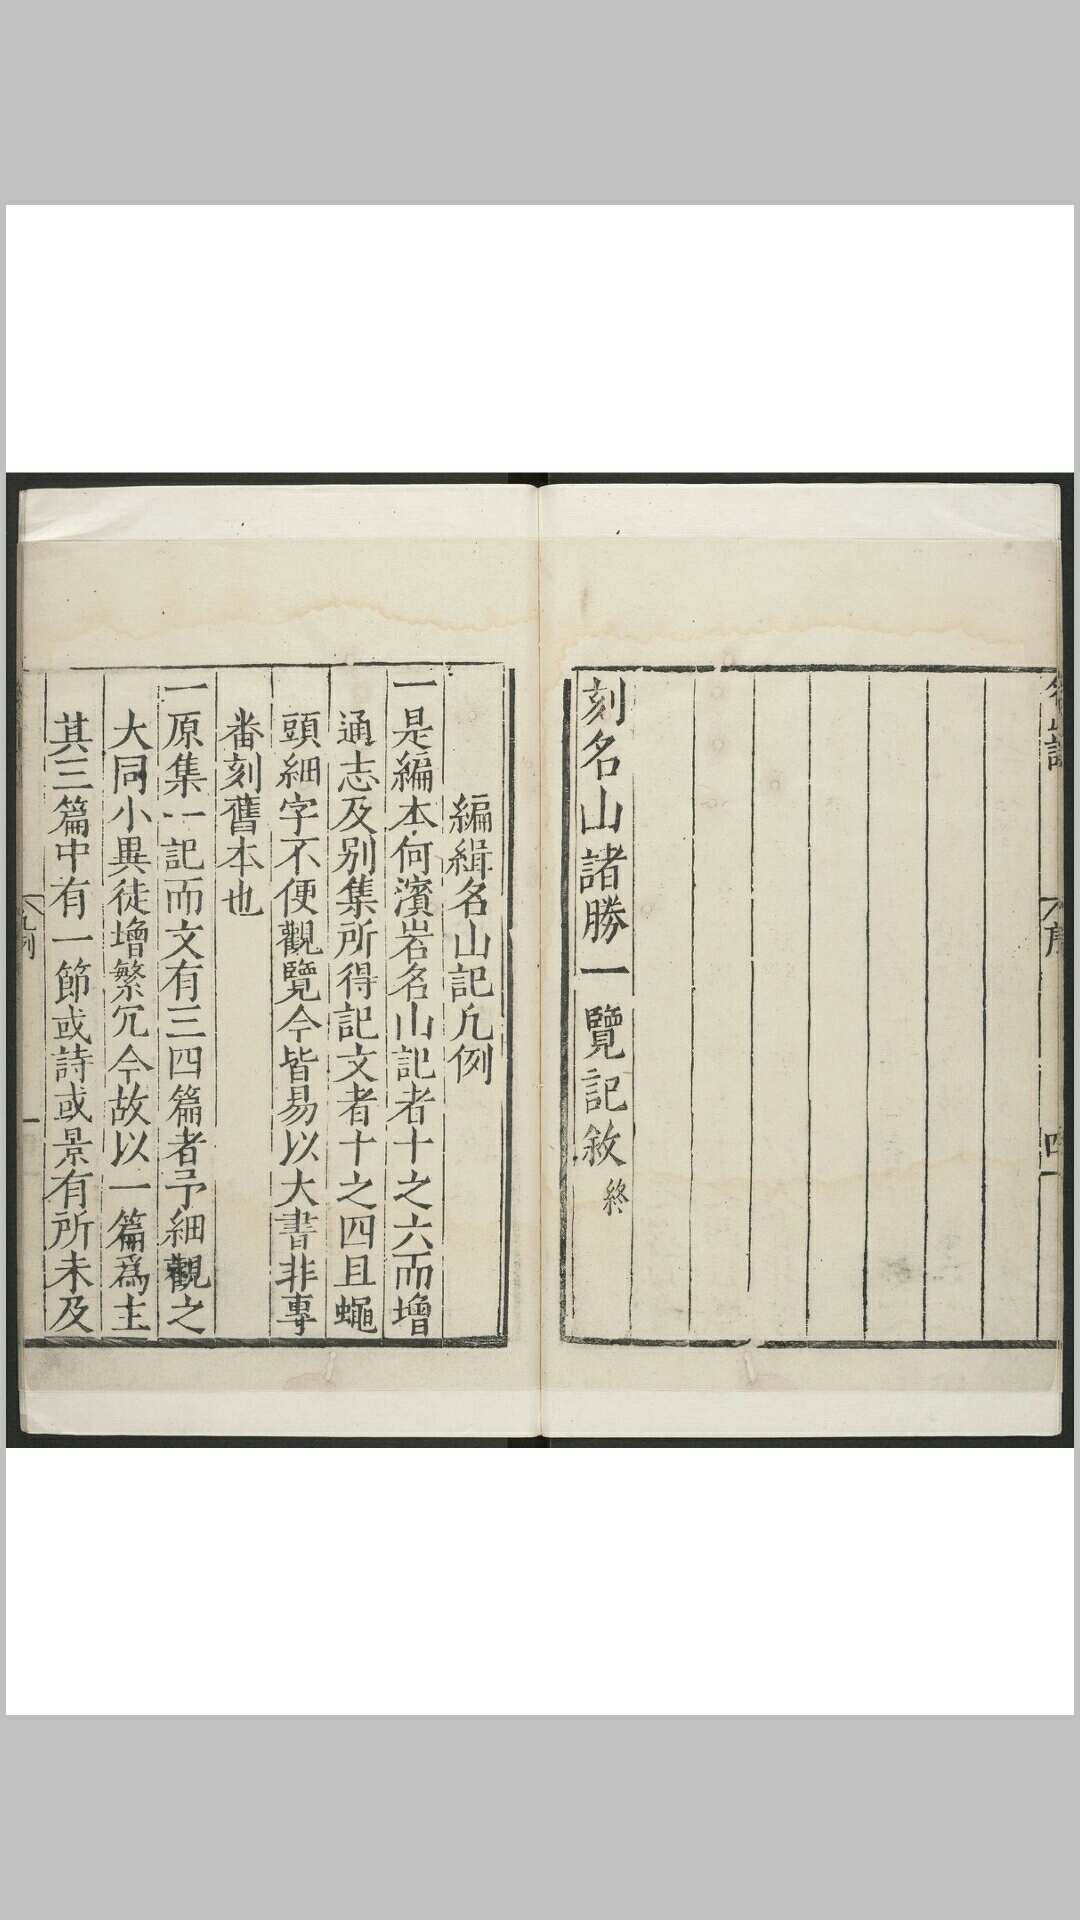 刻名山諸勝一覽記敘終
編緝名山記凡例
一是編本何濱岩名山記者十之六而增
通志及别集所得記文者十之四且蠅
頭細字不便觀覽今皆易以大書非專
畨刻舊本也
一原集一記而文有三四篇者予細觀之
大同小異徒增繁冗今故以一篇爲主
其三篇中有一節或詩或景有所未及